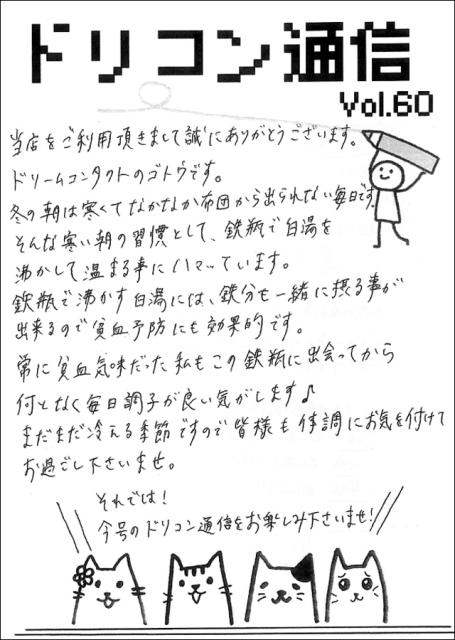 ドリコン通信
Vol.60
当店をご利用頂きまして誠にありがとうございます。
ドリームコンタクトのゴトウです。
冬の朝は寒くてなかなか布団から出られない毎日です。
そんな寒い朝の習慣として、鉄瓶で白湯を
沸かして温まる事にハマッています。
鉄瓶で沸かす白湯には、鉄分も一緒に摂る事が
出来るので貧血予防にも効果的です。
常に貧血気味だった私もこの鉄瓶に出会ってから
何となく毎日調子が良い気がします♪
まだまだ冷える季節ですので皆様も体調にお気を付けて
お過ごし下さいませ。
それでは！
今号のドリコン通信をお楽しみ下さいませ！